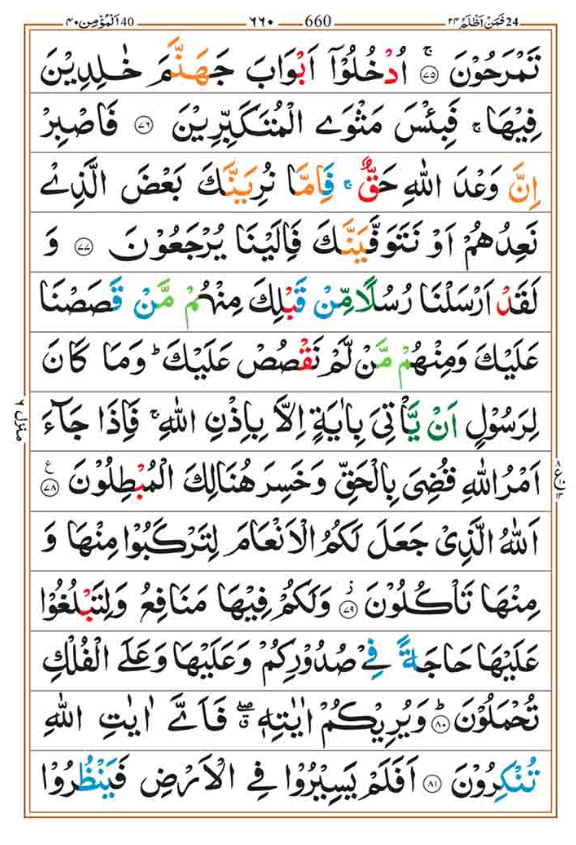 24 فَمَنْ اَظْلَمُ ٢٤ 660 ٦٦٠ 40 اَلْمُؤْمِن ٤٠
تَمْرَحُوْنَ ۚ﴿٧٥﴾ اُدْخُلُوْۤا اَبْوَابَ جَهَنَّمَ خٰلِدِيْنَ
فِيْهَا ۚ فَبِئْسَ مَثْوَى الْمُتَكَبِّرِيْنَ ﴿٧٦﴾ فَاصْبِرْ
اِنَّ وَعْدَ اللّٰهِ حَقٌّ ۚ فَاِمَّا نُرِيَنَّكَ بَعْضَ الَّذِيْ
نَعِدُهُمْ اَوْ نَتَوَفَّيَنَّكَ فَاِلَيْنَا يُرْجَعُوْنَ ﴿٧٧﴾ وَ
لَقَدْ اَرْسَلْنَا رُسُلًا مِّنْ قَبْلِكَ مِنْهُمْ مَّنْ قَصَصْنَا
عَلَيْكَ وَمِنْهُمْ مَّنْ لَّمْ نَقْصُصْ عَلَيْكَ ؕ وَمَا كَانَ
لِرَسُوْلٍ اَنْ يَّاْتِيَ بِاٰيَةٍ اِلَّا بِاِذْنِ اللّٰهِ ۚ فَاِذَا جَآءَ
اَمْرُ اللّٰهِ قُضِيَ بِالْحَقِّ وَخَسِرَ هُنَالِكَ الْمُبْطِلُوْنَ ﴿٧٨﴾ ع
اَللّٰهُ الَّذِيْ جَعَلَ لَكُمُ الْاَنْعَامَ لِتَرْكَبُوْا مِنْهَا وَ
مِنْهَا تَاْكُلُوْنَ ؗ﴿٧٩﴾ وَلَكُمْ فِيْهَا مَنَافِعُ وَلِتَبْلُغُوْا
عَلَيْهَا حَاجَةً فِيْ صُدُوْرِكُمْ وَعَلَيْهَا وَعَلَى الْفُلْكِ
تُحْمَلُوْنَ ؕ﴿٨٠﴾ وَيُرِيْكُمْ اٰيٰتِهٖ ۖۗ فَاَيَّ اٰيٰتِ اللّٰهِ
تُنْكِرُوْنَ ﴿٨١﴾ اَفَلَمْ يَسِيْرُوْا فِي الْاَرْضِ فَيَنْظُرُوْا
منزل ٦